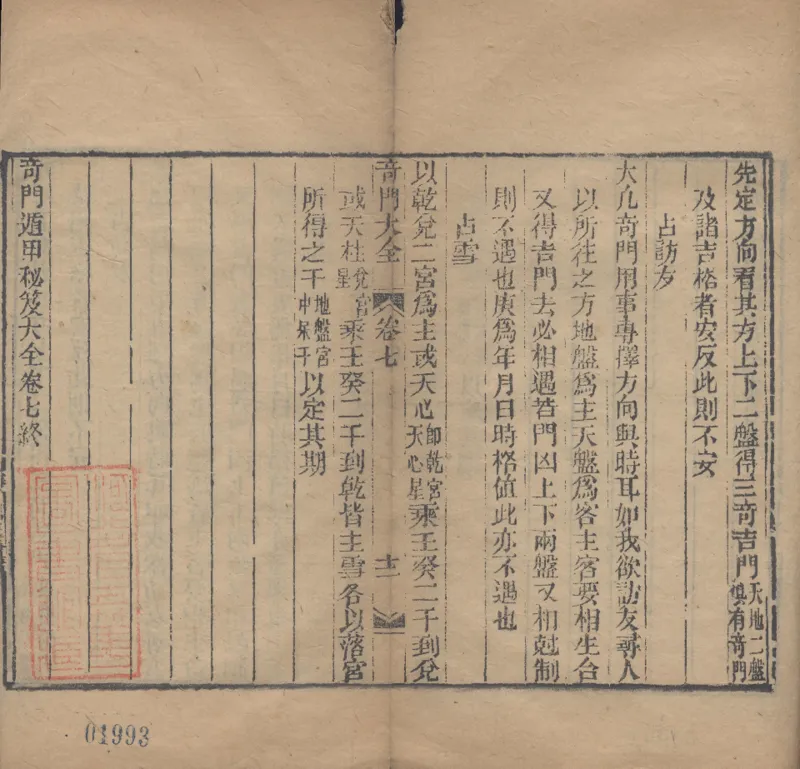 先定方向看其方上下二盤得三奇吉門天地二盤俱有奇門
及諸吉格者安反此則不安
占訪友
大凡奇門用事專擇方向與時耳如我欲訪友尋人
以所往之方地盤爲主天盤爲客主客要相生合
又得吉門去必相遇若門凶上下兩盤又相尅制
則不遇也庚爲年月日時格值此亦不遇也
占雪
以乾兌二宮爲主或天心即乾宮天心星乘壬癸二干到兌
奇門大全 卷七 十二
或天柱兌宮星乘壬癸二干到乾皆主雪各以落宮
所得之干地盤宮中某干以定其期
奇門遁甲秘笈大全卷七終
01993